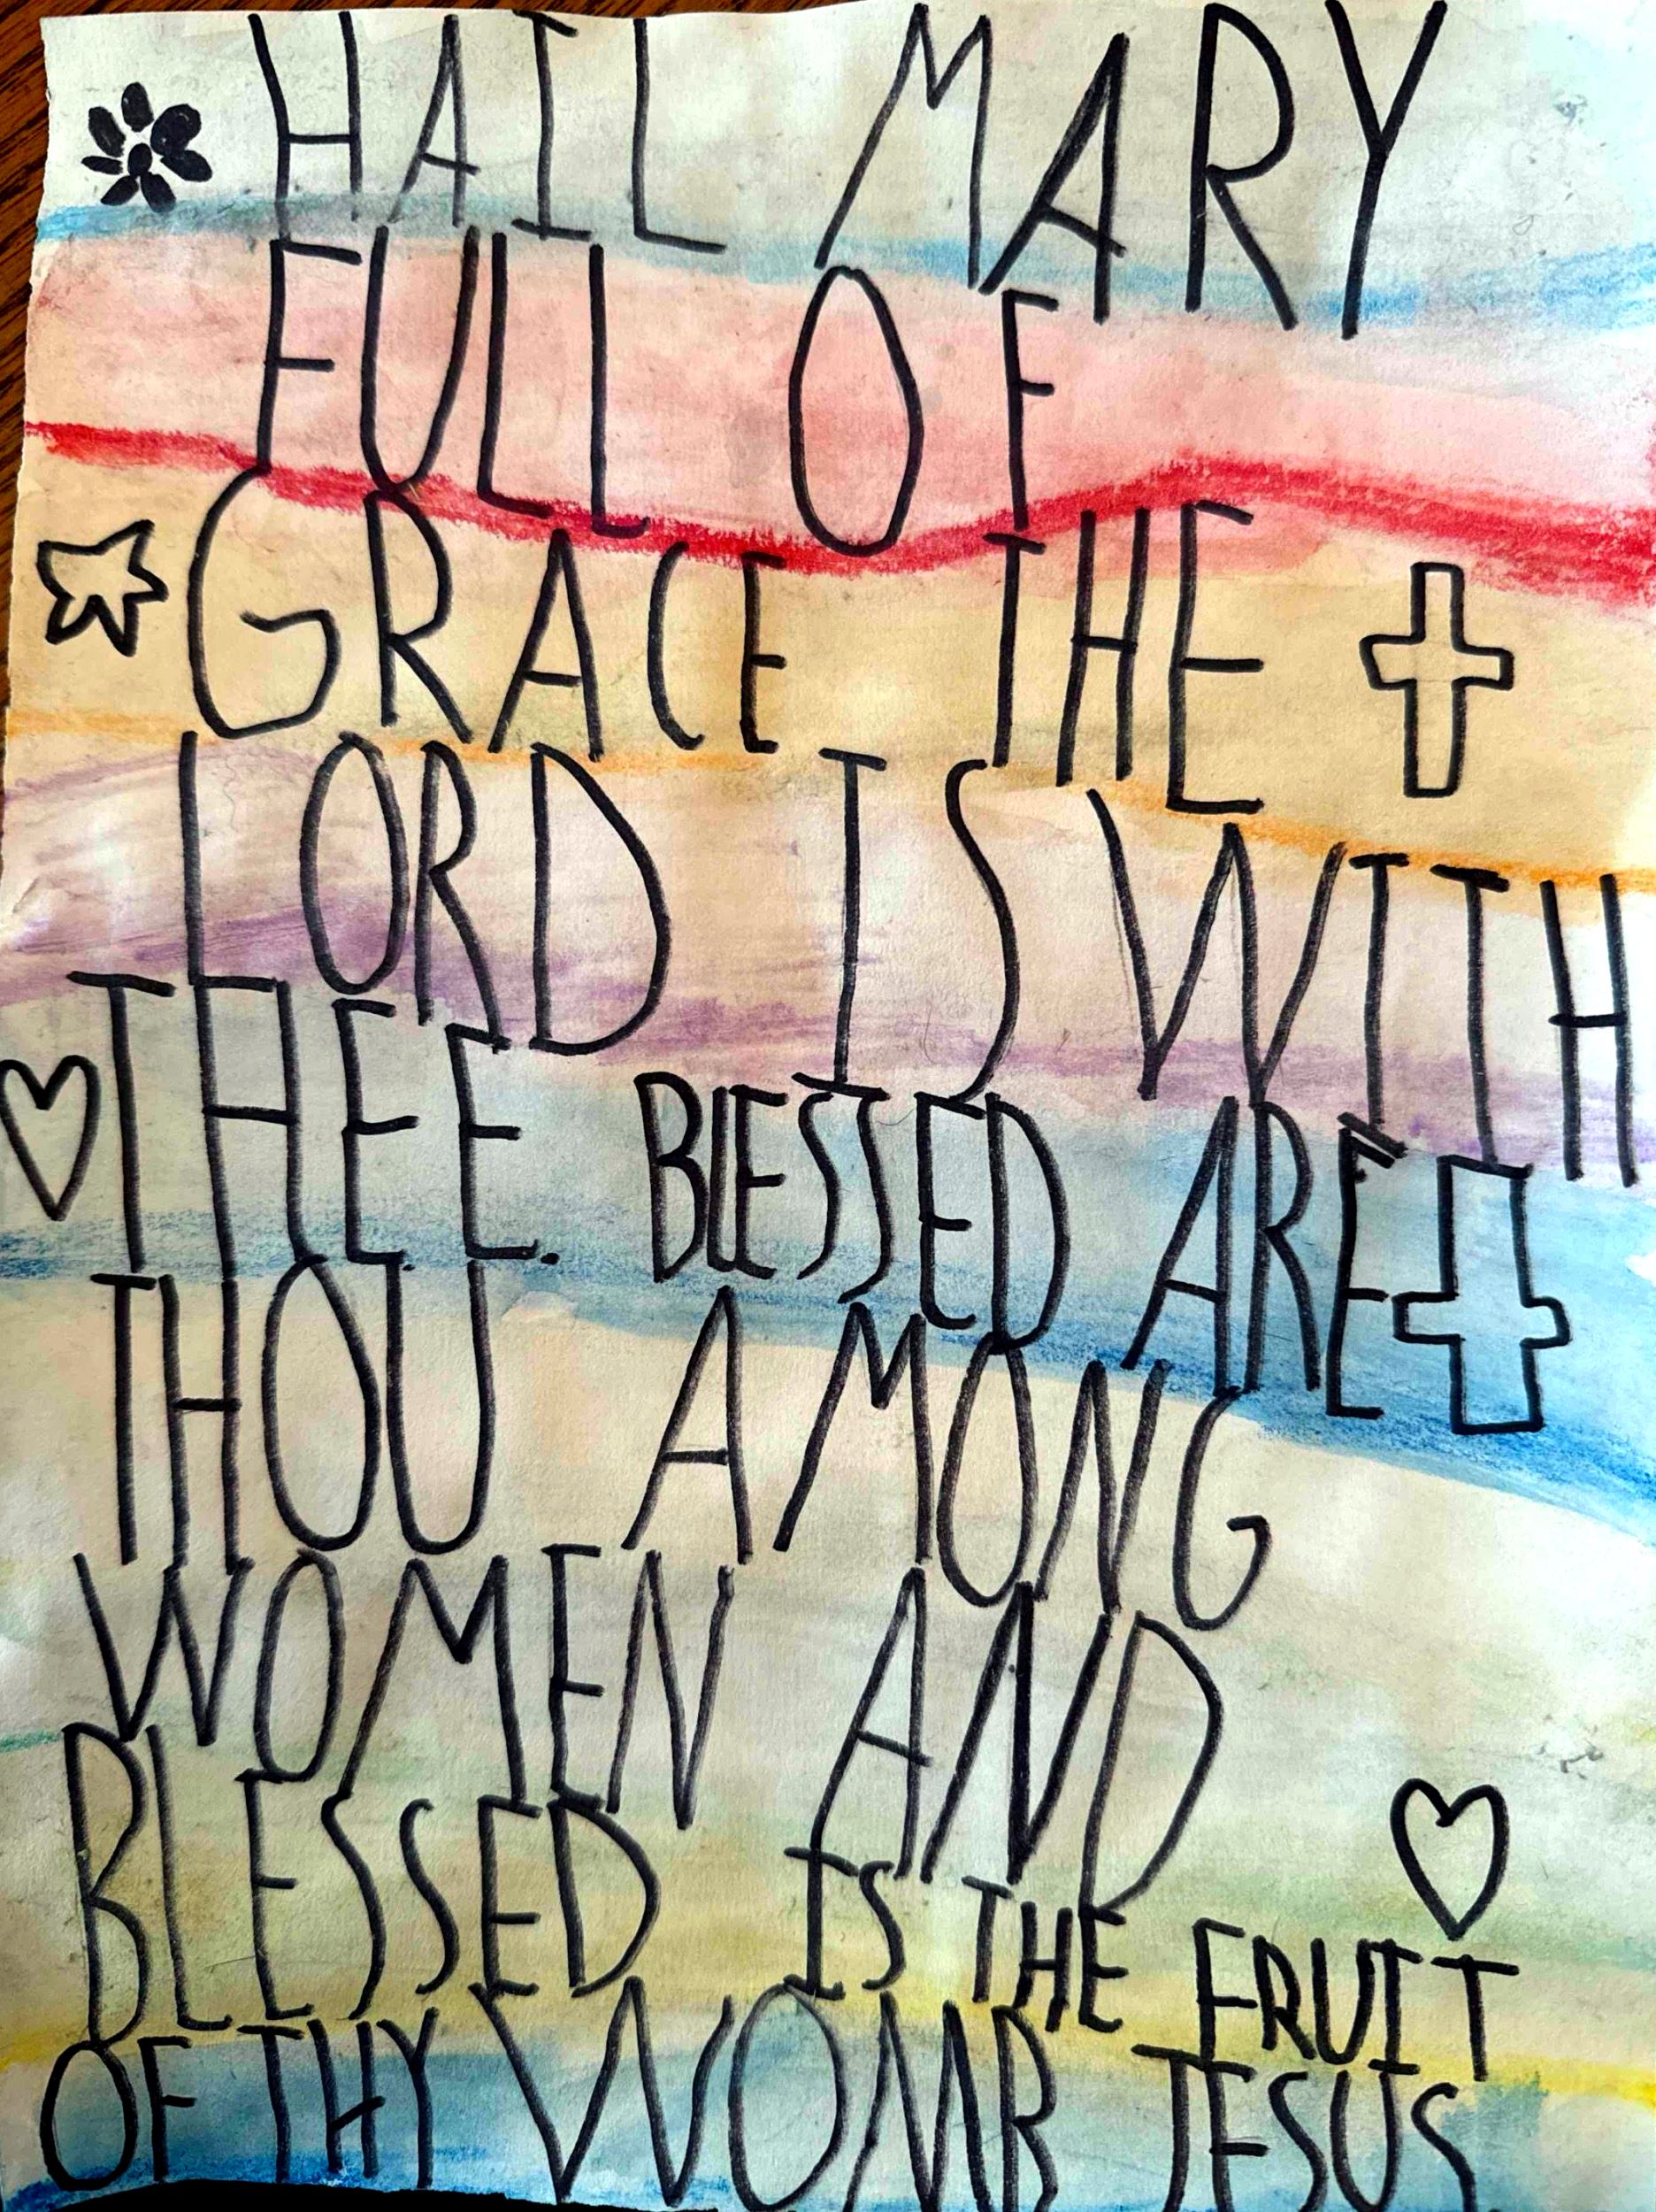 HAIL MARY
FULL OF
GRACE THE
LORD IS WITH
THEE. BLESSED ARE
THOU AMONG
WOMEN AND
BLESSED IS THE FRUIT
OF THY WOMB JESUS